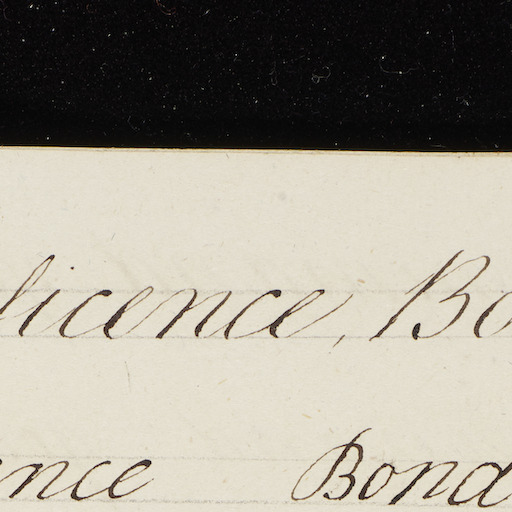 licence, Bo
nce Bond